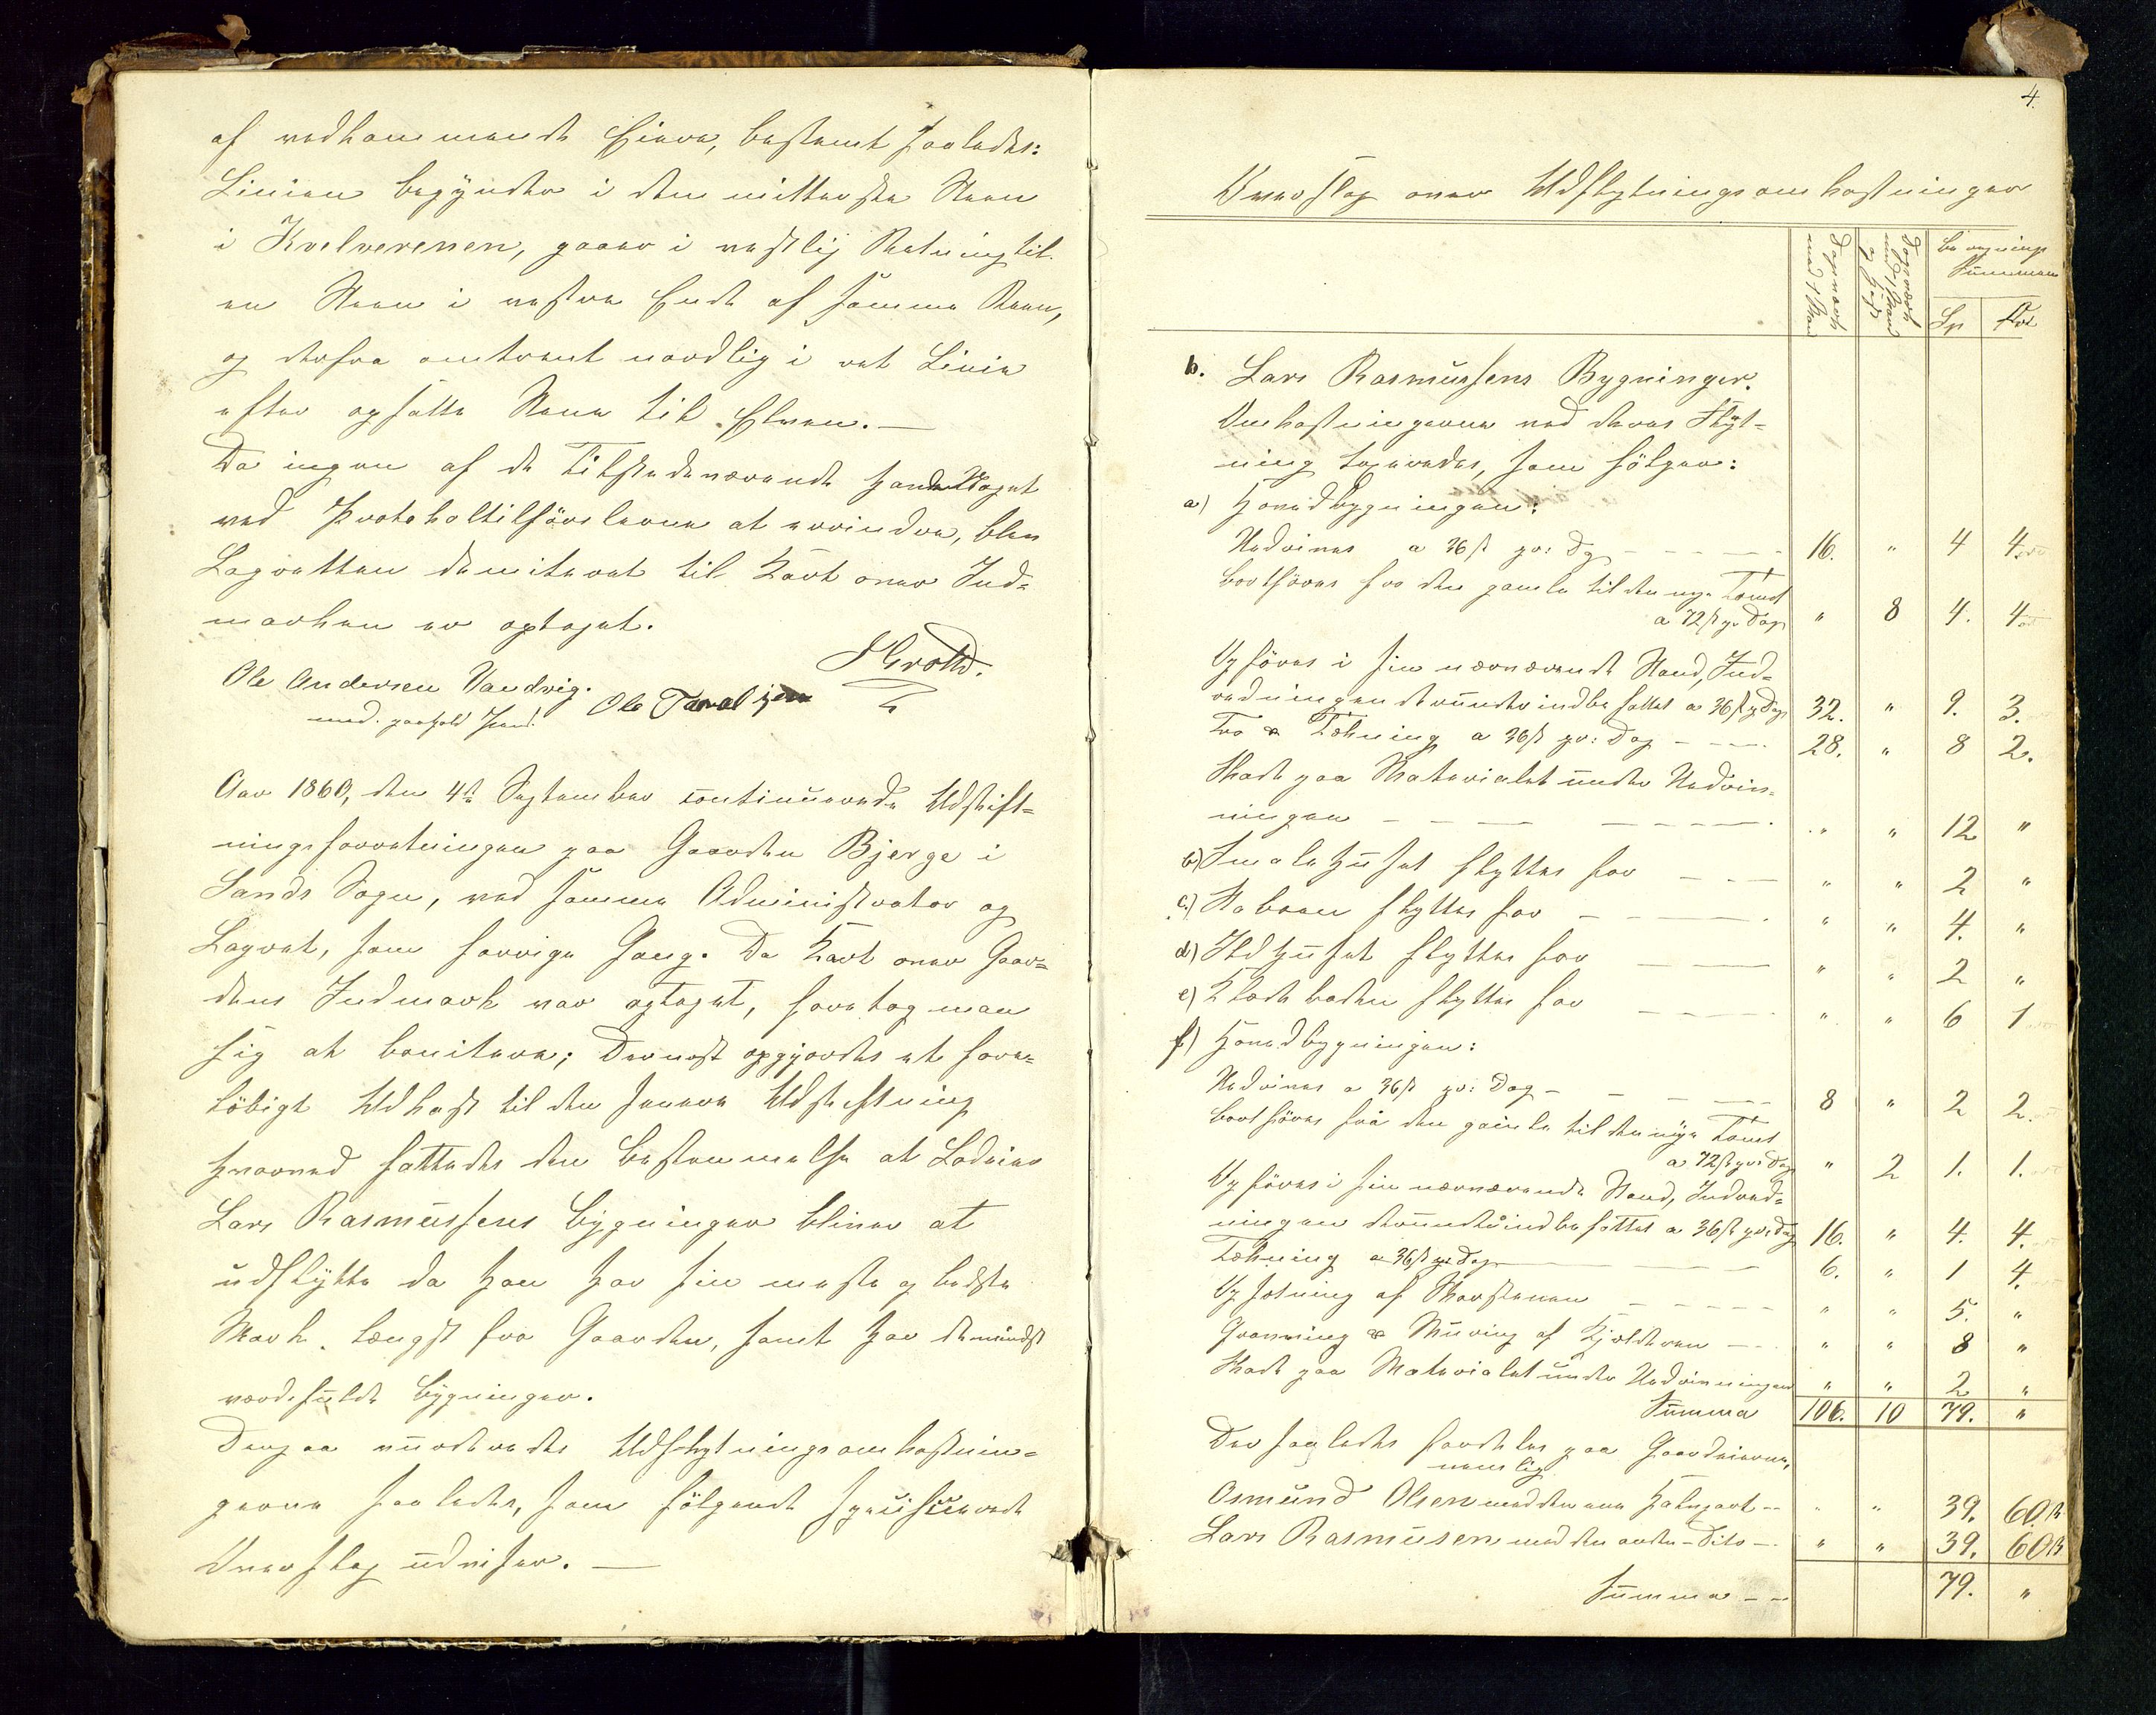 af vedkommende Eiere, bestemt saaledes:
Linien begynder i den mitterste Steen
i Kvelverenen, gaaer i vestlig Retning til
en Steen i vestre Ende af samme Reen,
og derfra omtrent nordlig i ret Linie
efter opsatte Stene til Elven. —
Da ingen af de Tilstedeværende havde Noget
ved Protokoltilførslerne at erindre, blev
Lagretten demiteret til Kart over Ind-
marken er optaget.
Ole Andersen Sandvig. Ole Taraldsen
med paaholden Pen.
Aar 1860, den 4de September continuerede Udskift-
ningsforretningen paa Gaarden Bjerge i
Sands Sogn, ved samme Administrator og
Lagret, som forrige Gang. Da Kart over Gaar-
dens Indmark var optaget, foretog man
sig at bonitere; Dernæst opgjordes et fore-
løbigt Udkast til den senere Udskiftning
hvorved fattedes den Bestemmelse at Lodeier
Lars Rasmussens Bygninger bliver at
udflytte da han har sin meste og bedste
Mark længst fra Gaarden, samt har de mindst
værdifulde Bygninger.
Derpaa vurderedes Udflytningsomkostnin-
gerne saaledes, som følgende specificerede
Overslag udviser. —
4.
Overslag over Udflytningsomkostninger
Dagsværk med 1 Mand
Dagsværk med 1 Mand og Hest
Beregnings Summen
Sp
Ort
b. Lars Rasmussens Bygninger.
Omkostningerne ved deres Flyt-
ning taxeredes, som følger:
a) Hovedbygningen:
Nedrives a 36 ß pr: Dg — 16. " 4 4.
bortføres fra den gamle til den nye Tomt
a 72 ß pr Dag " 8 4. 4
Opføres i sin nærværende Stand, Ind-
redningen derunder indbefattet a 36 ß pr Dag 32. " 9. 3.
Tro & Tækning a 36 ß pr: Dag — 28. " 8 2.
Skade paa Materialet under Nedriv-
ningen — " " 12 "
b) Smalehuset flyttes for — " " 2 "
c.) Stabuen flyttes for — " " 4. "
d) Ildhuset flyttes for — " " 2 "
e) Kladeboden flyttes for — " " 6 1
f) Hovedbygningen:
Nedrives a 36 ß pr: Dag — 8 " 2 2.
bortføres fra den gamle til den nye Tomt
a 72 ß pr: Dag " 2 1. 1.
Opføres i sin nærværende Stand, Indred-
ningen derunder indbefattet a 36 ß pr: Dag 16. " 4. 4.
Tækning a 36 ß pr Dag — 6. " 1 4.
Opsætning af Skorstenen — " " 5. "
Gravning & Muring af Kjelderen — " " 8 "
Skade paa Materialet under Nedrivningen " " 2 "
Summa 106. 10 79. "
Der saaledes fordeles paa Gaardeierne,
nemlig
Osmund Olsen med den ene Halvpart — " " 39. 60 ß
Lars Rasmusen med den anden Dito — " " 39. 60 ß
Summa — 79. "